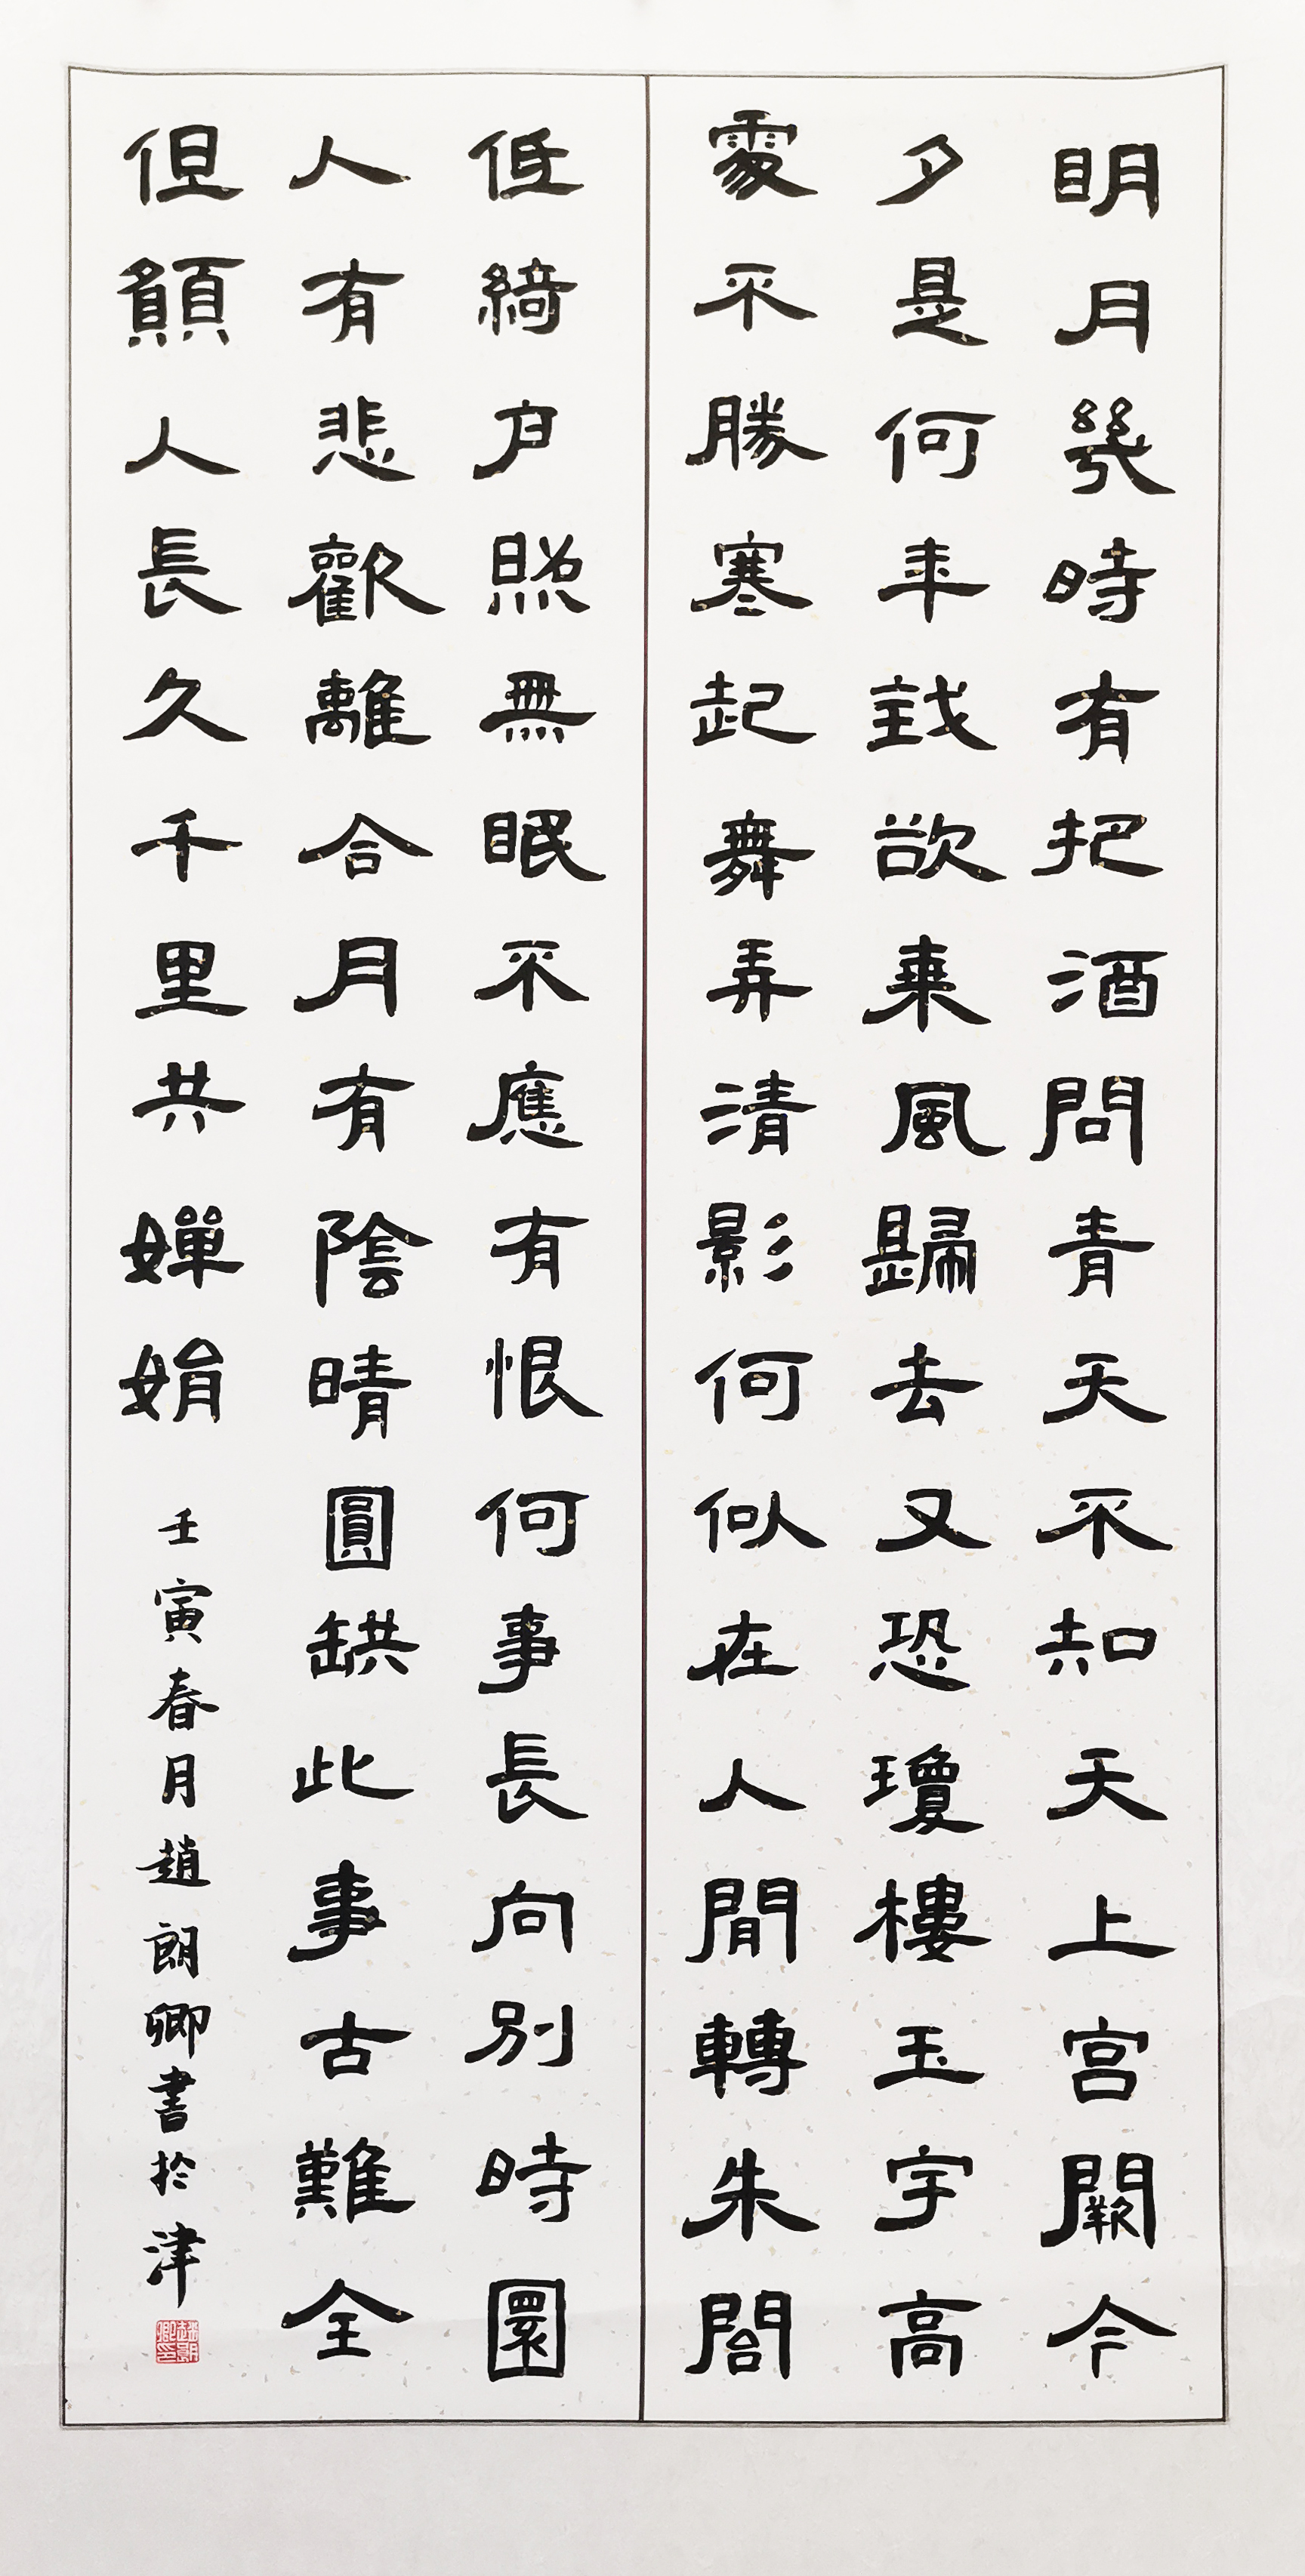 明月幾時有把酒問青天不知天上宮闕今
夕是何年我欲乘風歸去又恐瓊樓玉宇高
處不勝寒起舞弄清影何似在人間轉朱閣
低綺户照無眠不應有恨何事長向別時圜
人有悲歡離合月有陰晴圓缺此事古難全
但願人長久千里共嬋娟
壬寅春月趙朗卿書於津
趙朗卿印